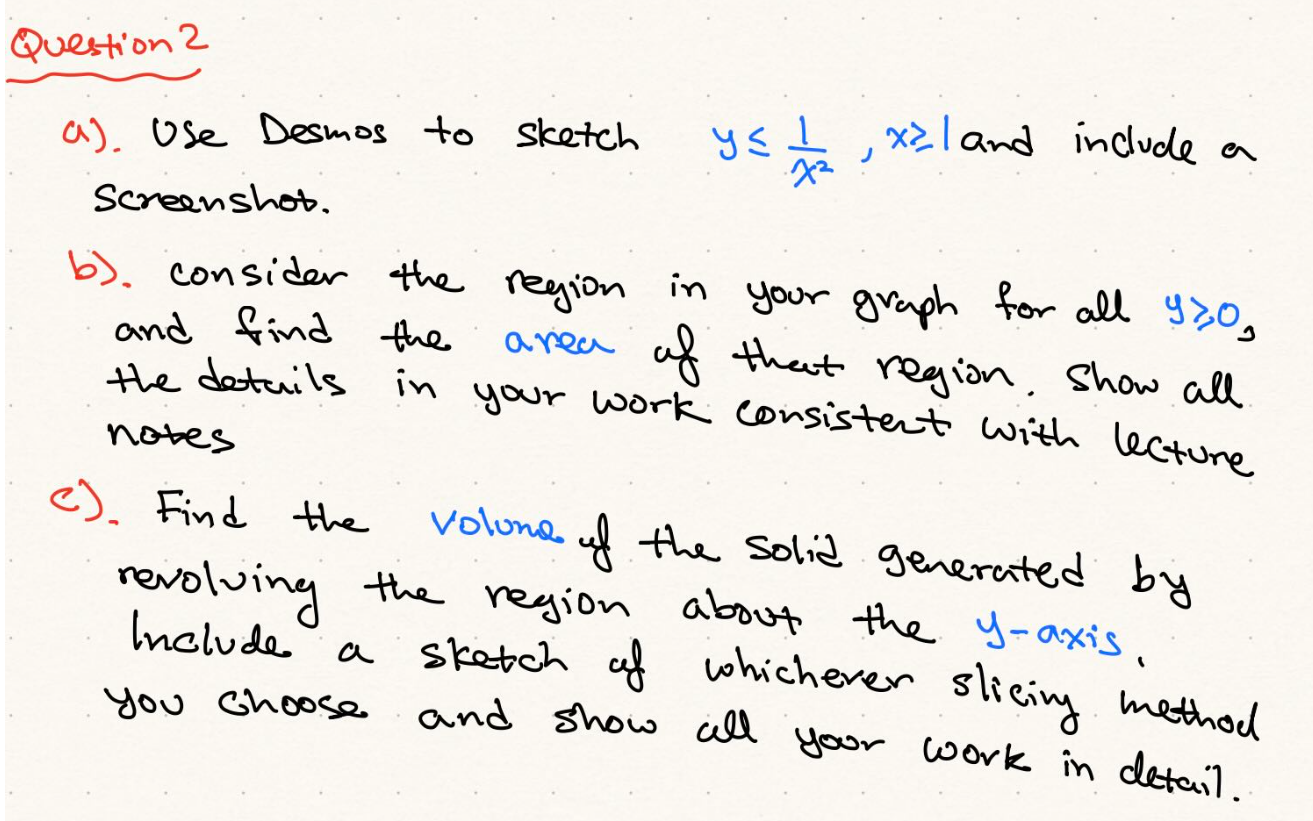 Question 2
a). Use Desmos to sketch y ≤ 1/x², x≥1 and include a
screenshot.
b). consider the region in your graph for all y≥0,
and find the area of that region. Show all
the details in your work consistent with lecture
notes
c). Find the volume of the solid generated by
revolving the region about the y-axis.
Include a sketch of whichever slicing method
you choose and show all your work in detail.